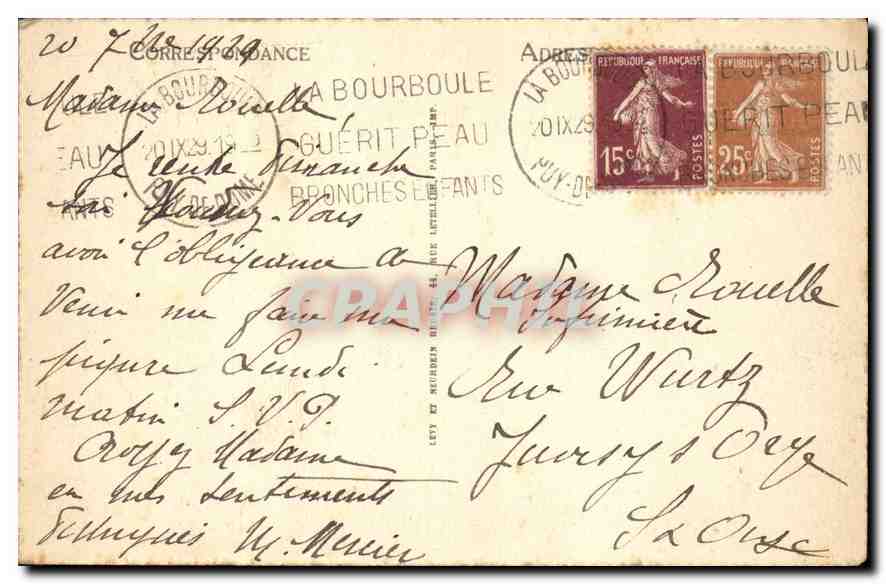 CORRESPONDANCE
ADRES
20 7bre 1929
Madame Rouelle,
Je rentre Dimanche
Voulez-Vous
avoir l'obligeance de
Venir me faire ma
piqure Lundi
matin S.V.P.
Croyez Madame
en mes sentiments
distingués M. Mercier
LA BOURBOULE
20 IX 29
PUY-DE-DOME
LA BOURBOULE
GUERIT PEAU
BRONCHES ENFANTS
EAU
ANTS
LEVY ET NEURDEIN REUNIS, 44, RUE LETELLIER, PARIS. IMP.
LA BOURBOULE
20 IX 29
PUY-DE
LA BOURBOULE
GUERIT PEAU
REPUBLIQUE FRANÇAISE
15c
POSTES
REPUBLIQUE FRANÇAISE
25c
POSTES
Madame Rouelle
Infirmière
Rue Wurtz
Juvisy s Orge
S & Oise
CPAPHIL